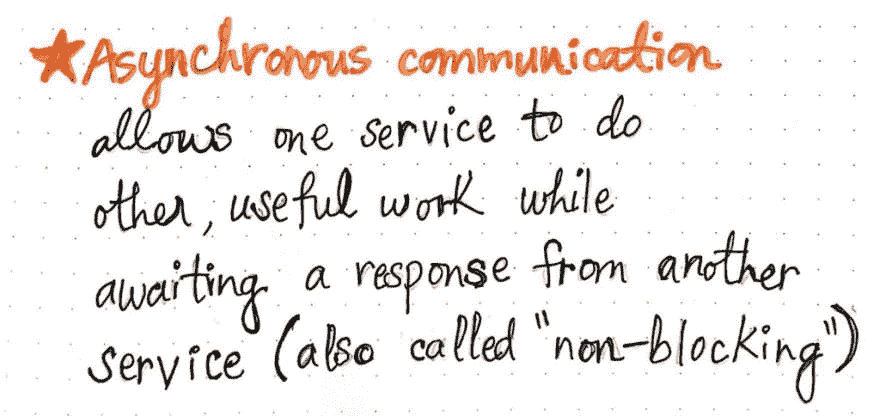 ★Asynchronous communication
allows one service to do
other, useful work while
awaiting a response from another
service (also called "non-blocking")